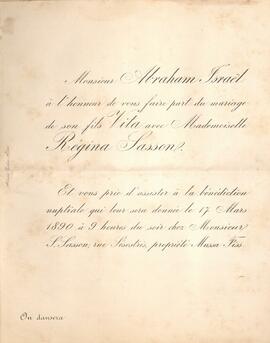 Monsieur Abraham Israël
à l'honneur de vous faire part du mariage
de son fils Vita avec Mademoiselle
Régina Sasson.
Et vous prie d'assister à la bénédiction
nuptiale qui leur sera donnée le 17 Mars
1890 à 9 heures du soir chez Monsieur
S. Sasson, rue Sesostris, propriété Mussa Fiss.
On dansera